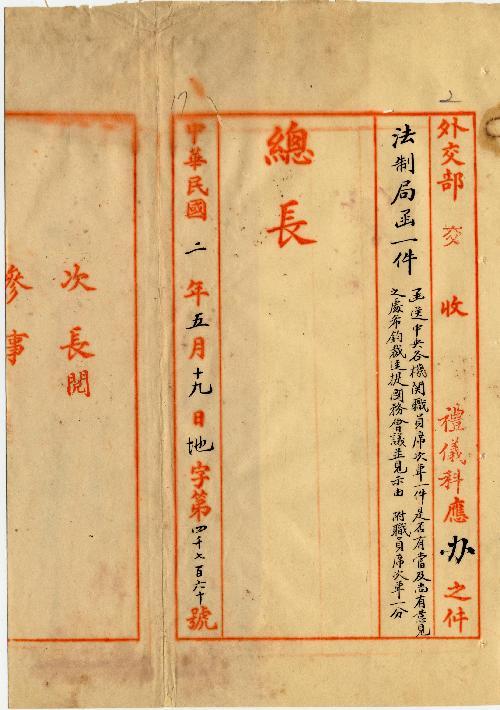 2
外交部 交 收 禮儀科應办之件
法制局函一件
函送中央各機関職員席次單一件是否有當及尚有意見
之處希鈞裁逕提國務會議並見示由 附職員席次單一分
總長
17
中華民國二年五月十九日地字第四千七百六十號
次長閱
參事